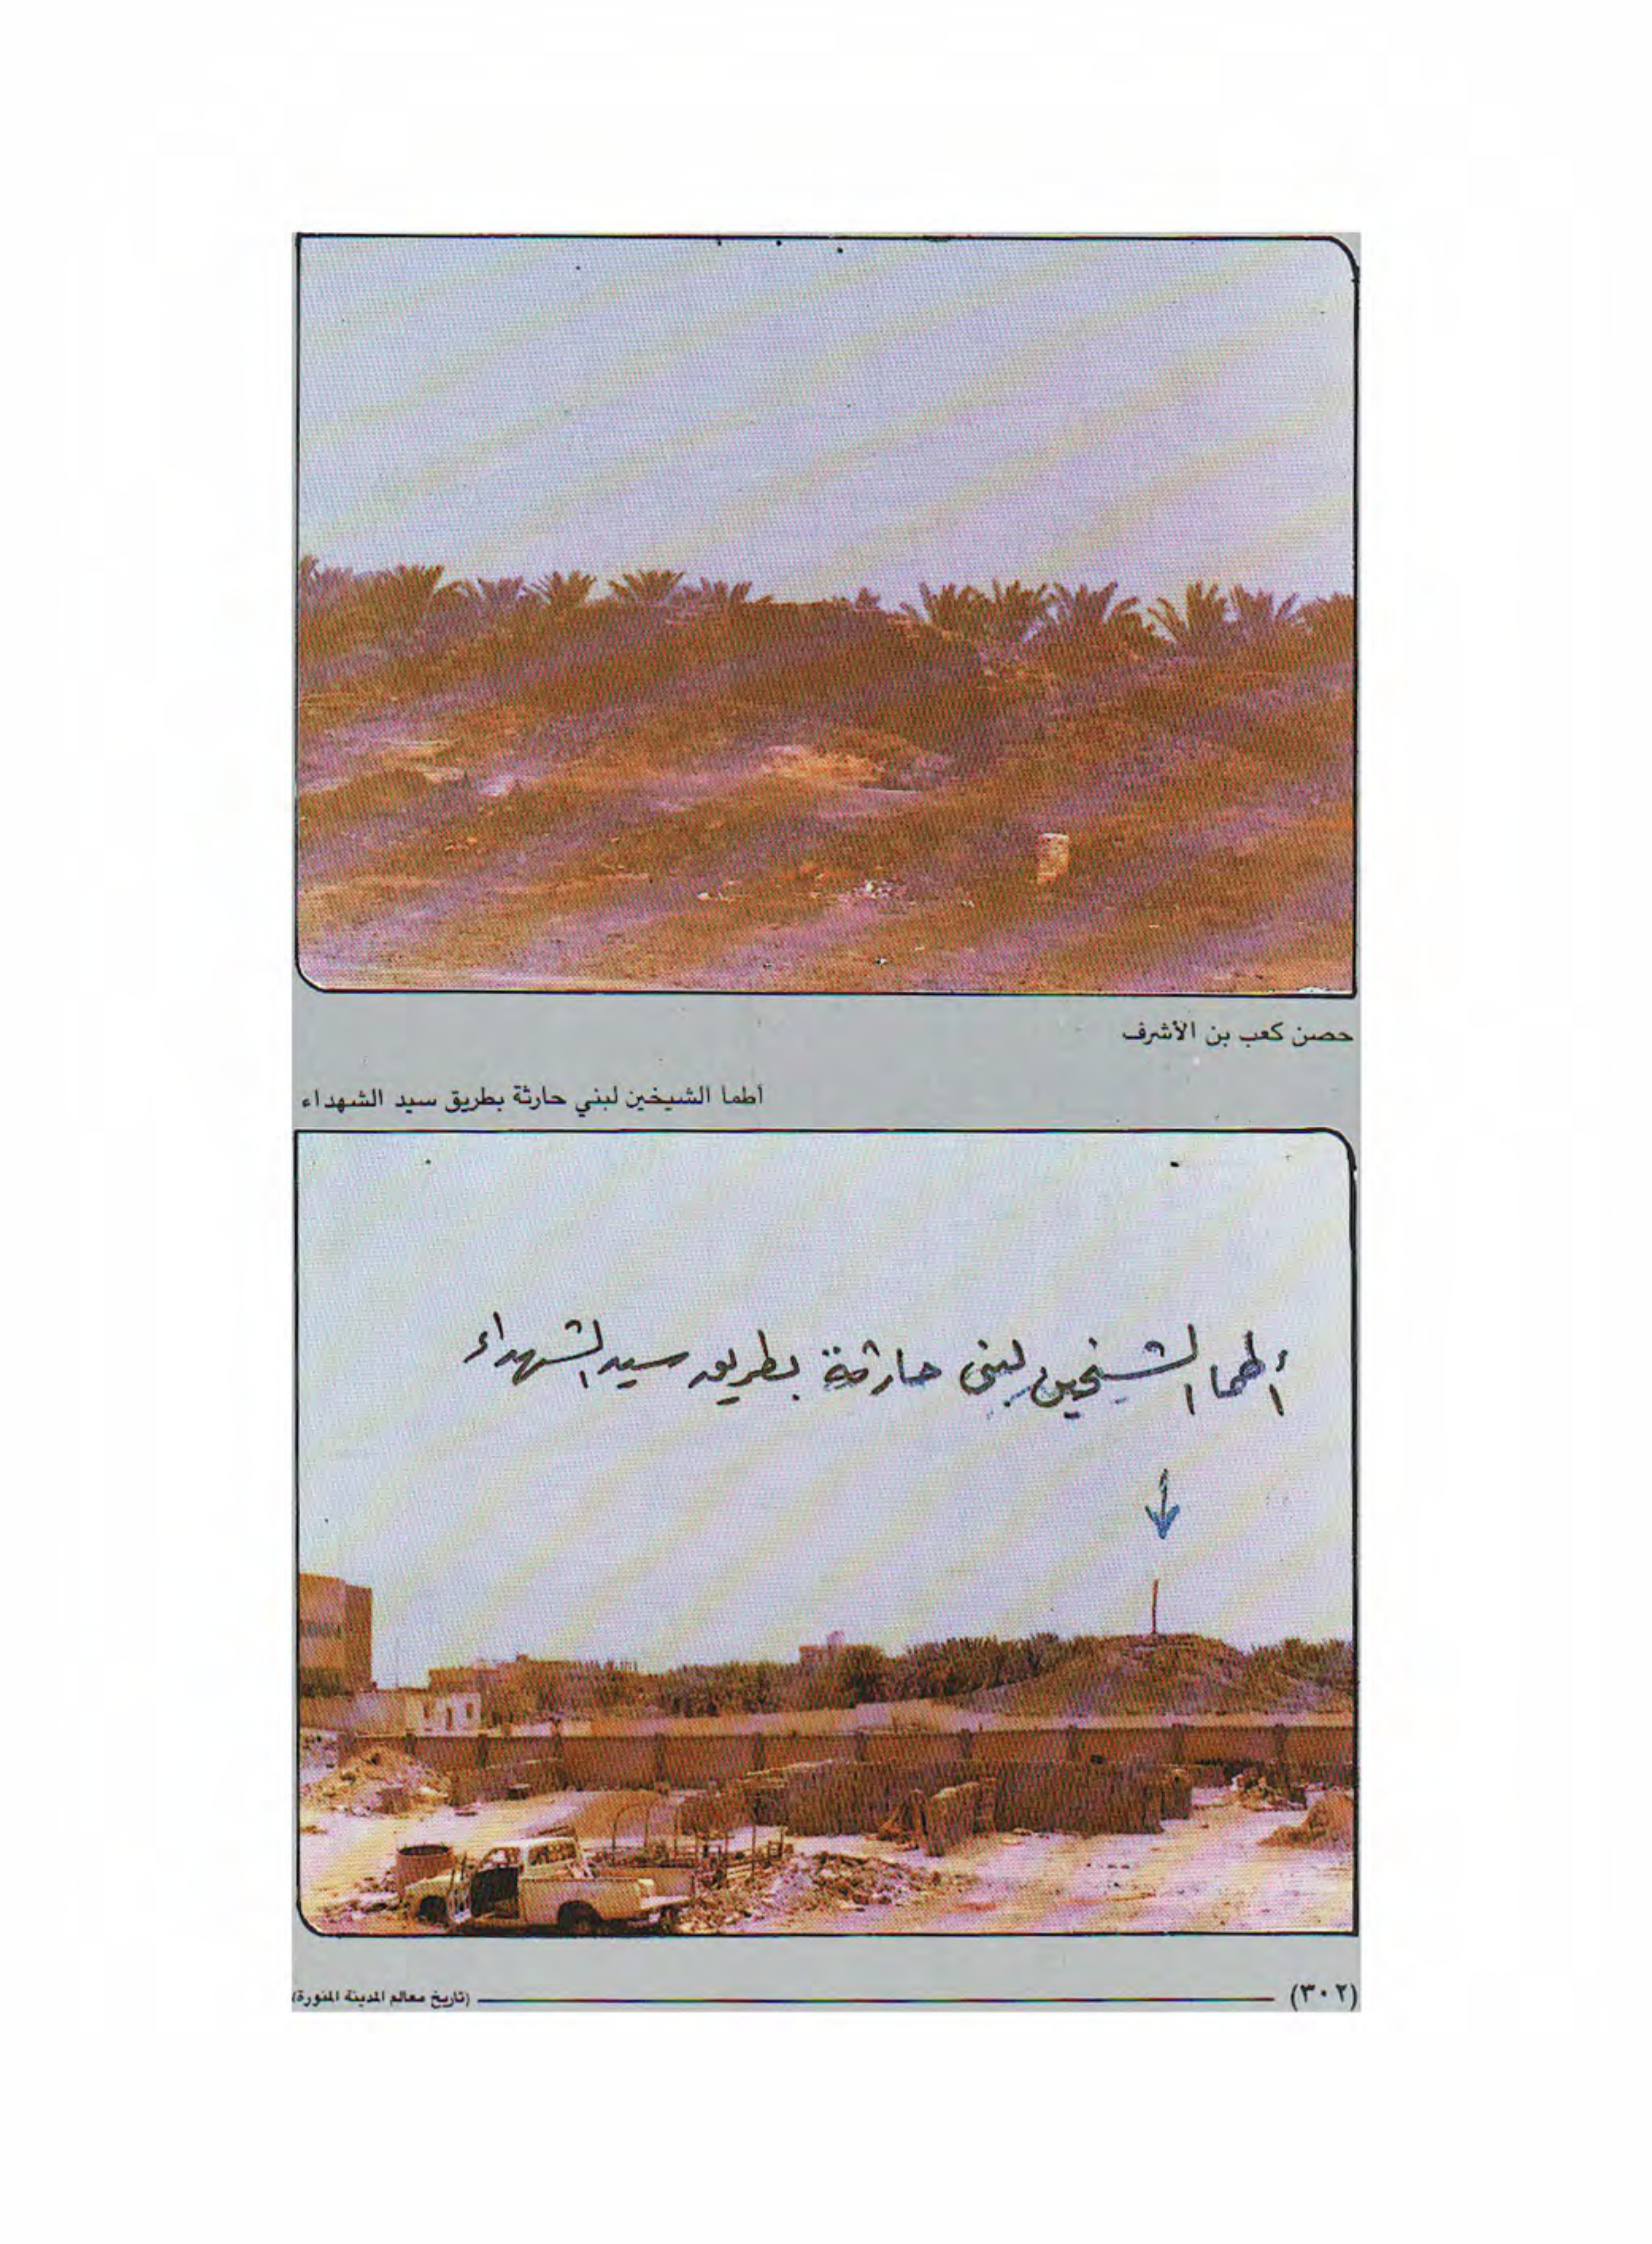 حصن كعب بن الأشرف
أطما الشيخين لبني حارثة بطريق سيد الشهداء
أطما الشيخين لبنى حارثة بطريق سيد الشهداء
(٣٠٢) (تاريخ معالم المدينة المنورة)